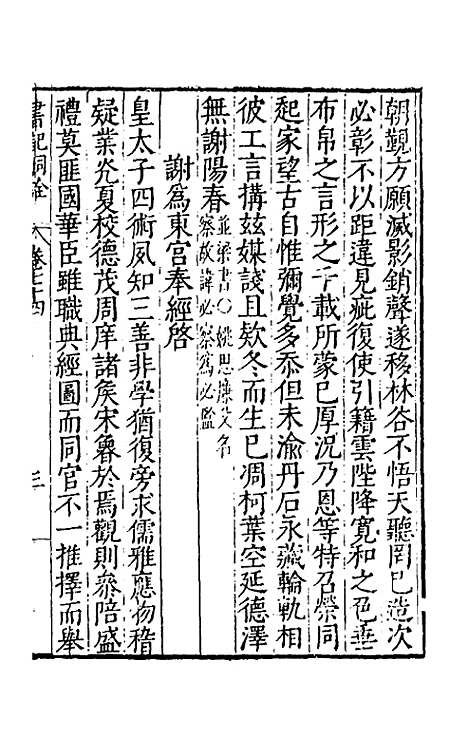 朝覲方願滅影銷聲遂移林谷不悟天聽罔已造次
必彰不以距違見疵復使引籍雲陛降寬和之色垂
布帛之言形之千載所蒙已厚況乃恩等特召榮同
起家望古自惟彌覺多忝但未渝丹石永藏輪軌相
彼工言搆茲媒諓且欸冬而生已凋柯葉空延德澤
無謝陽春並梁書○姚思廉父名
察故諱必察爲必鑑
謝爲東宮奉經啓
皇太子四術夙知三善非學猶復旁求儒雅應物稽
疑業光夏校德茂周庠諸侯宋魯於焉觀則叅陪盛
禮莫匪國華臣雖職典經圖而同官不一推擇而舉
書記洞詮 卷七十四 三